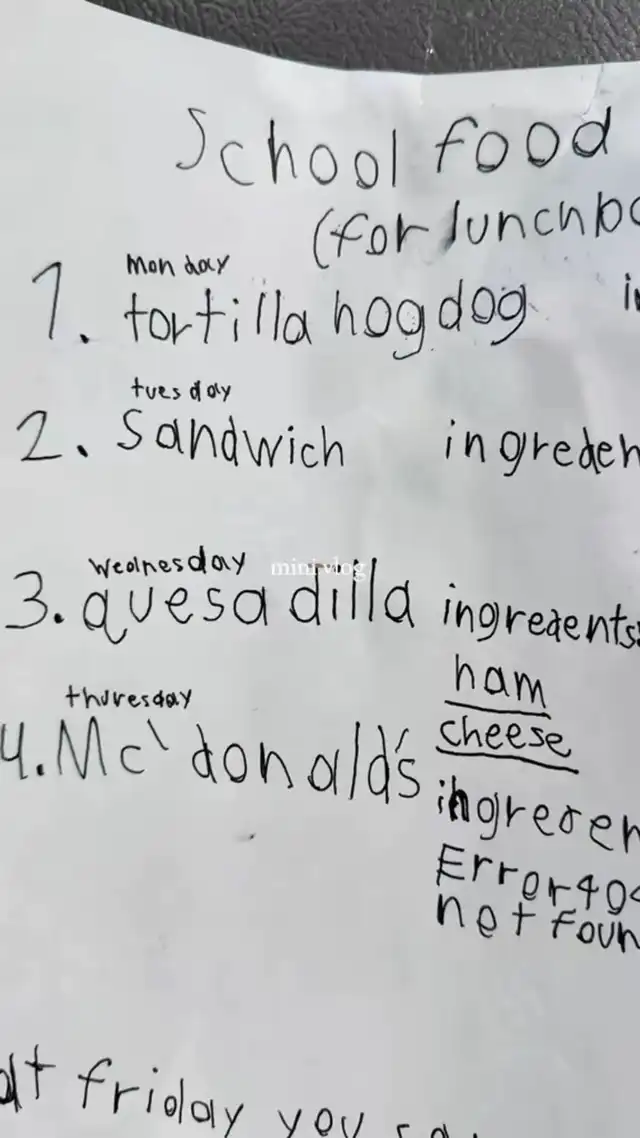 School food
(for lunchbo
Monday
1. tortilla hogdog in
tuesday
2. Sandwich ingreden
Wednesday
mini vlog
3. quesadilla ingredents:
ham
cheese
thuresday
4. Mc'donald's
ingreden
Error 404
not foun
at friday you